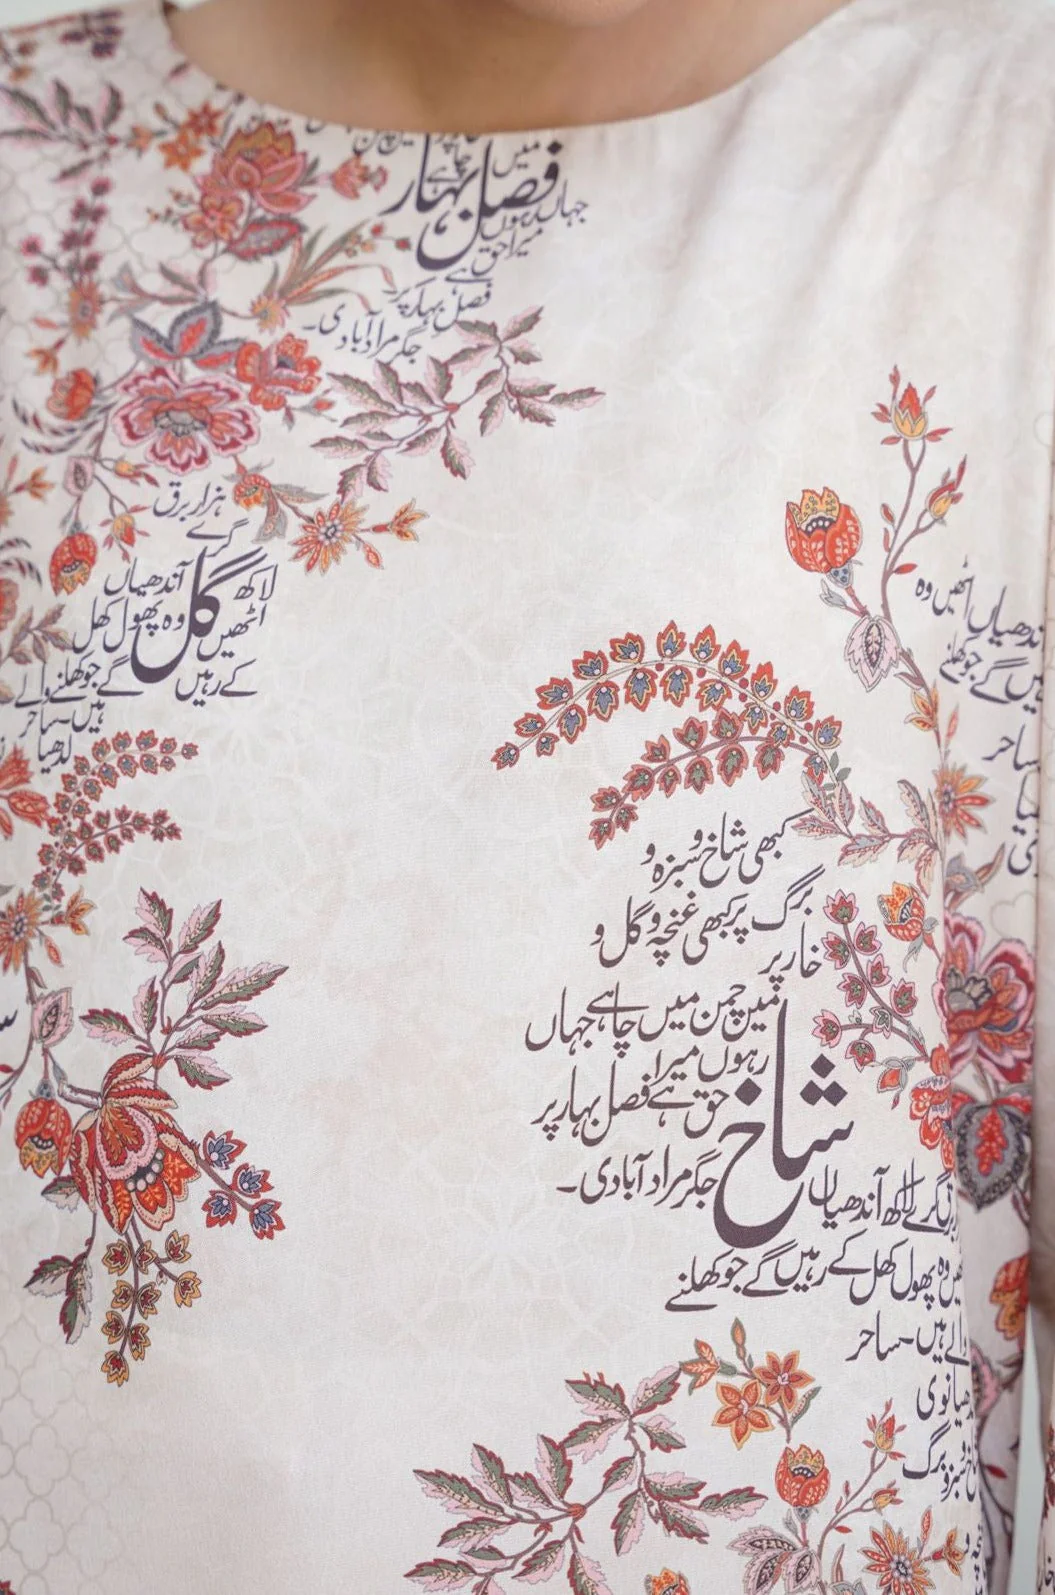 میں
چاہے
فصل بہار
جہاں رہوں
میرا حق
ہے
فصل بہار پر
جگر مراد آبادی۔
ہزار برق
گرے
لاکھ آندھیاں
اٹھیں گل وہ پھول کھل
کے رہیں گے جو کھلنے والے
ہیں۔ ساحر
لدھیا
اٹھیں وہ
آندھیاں
گے جو کھلنے
ساحر
کبھی شاخ و سبزہ و
برگ پر کبھی غنچہ و گل و
خار پر
میں چمن میں چاہے جہاں
رہوں میرا
حق ہے فصل بہار پر
شاخ
جگر مراد آبادی۔
برق گرے لاکھ آندھیاں
اٹھیں وہ پھول کھل کے رہیں گے جو کھلنے
والے ہیں۔ ساحر
لدھیانوی
و برگ
سبزہ